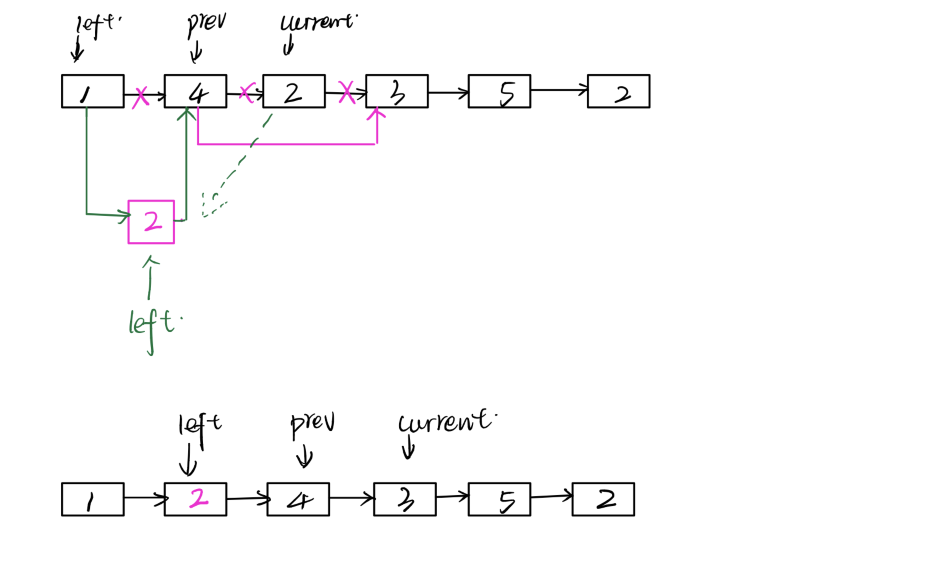 left. prev current.
1 4 2 3 5 2
2
left.
left prev current.
1 2 4 3 5 2